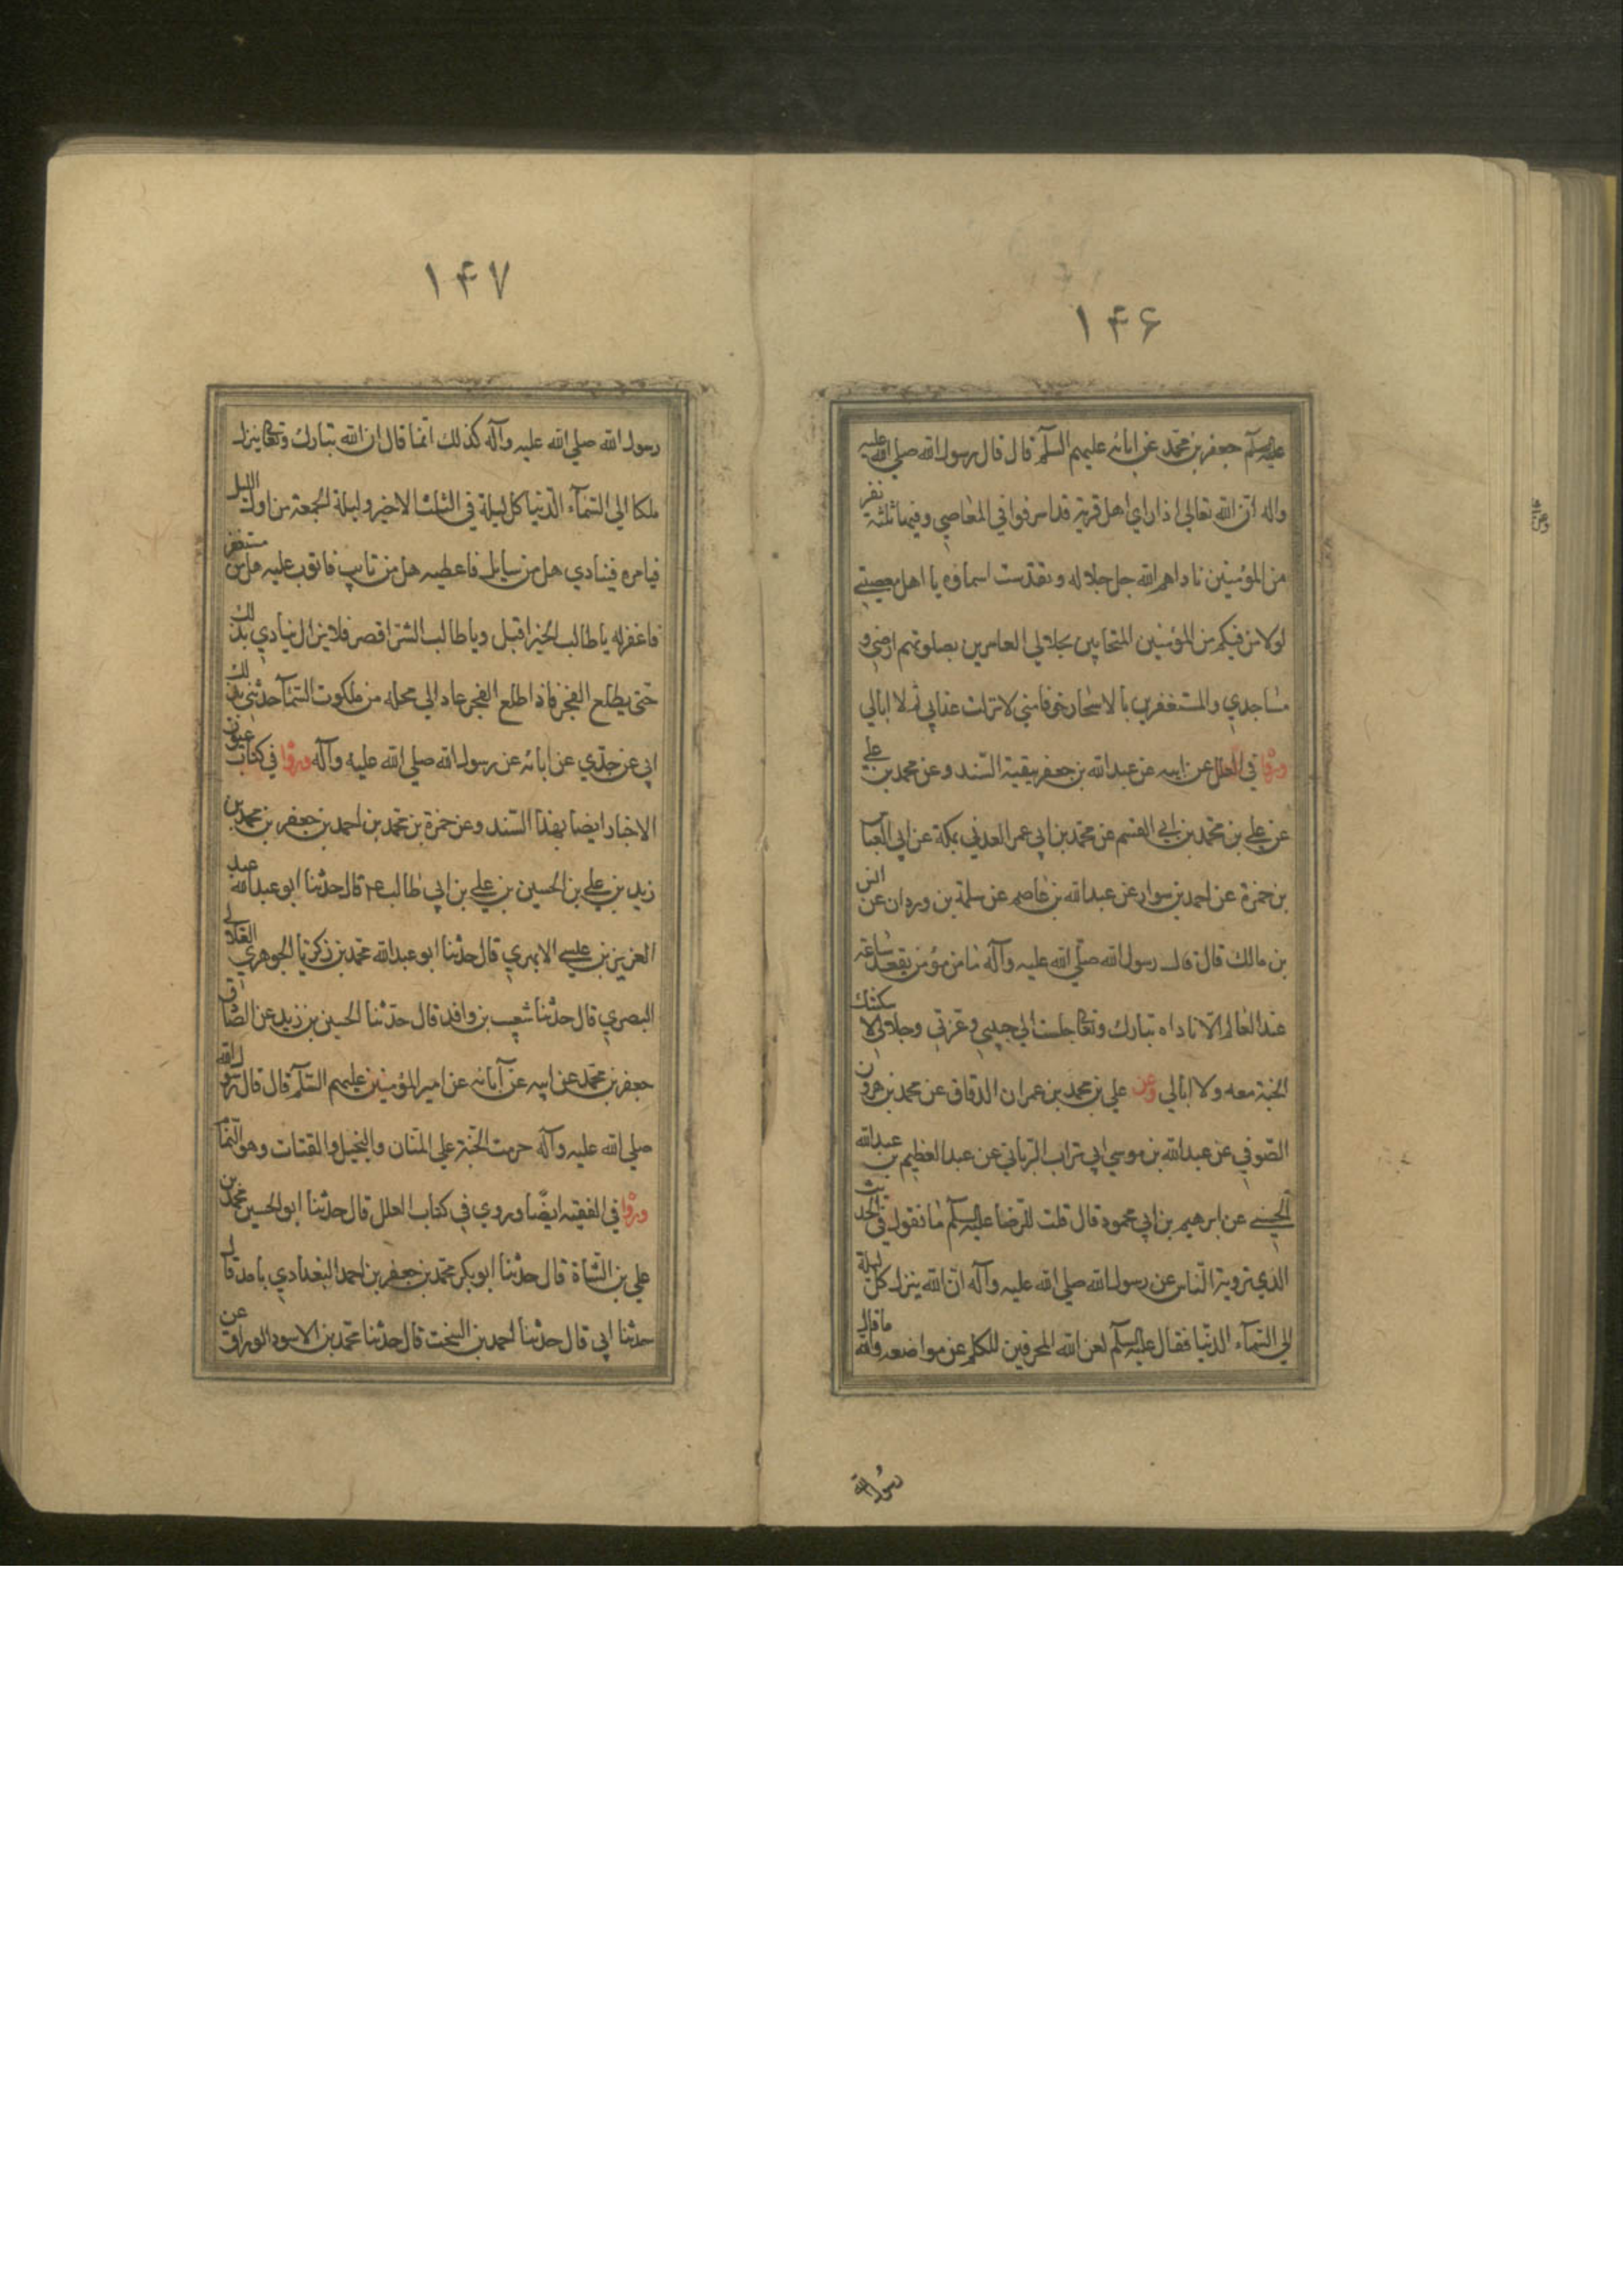 ۱۴۶
عليه السلم جعفر بن محمد عن ابائه عليهم السلم قال قال رسول الله صلي الله عليه
واله ان الله تعالي اذا راي اهل قرية قد اسرفوا في المعاصي وفيها ثلثة نفر
من المؤمنين ناداهم الله جل جلاله وتقدست اسماؤه يا اهل معصيتي
لولا من فيكم من المؤمنين المتحابين بجلالي العامرين بصلوتهم ارضي و
مساجدي والمستغفرين بالاسحار خوفا مني لانزلت عذابي ثم لا ابالي
ورواه في العلل عن ابيه عن عبدالله بن جعفر ببقية السند وعن محمد بن علي
عن علي بن محمد بن ابي القسم عن محمد بن ابي عمر العدني بمكة عن ابي العباس
بن حمزة عن احمد بن سوار عن عبدالله بن عاصم عن سلمة بن وردان عن انس
بن مالك قال قال رسول الله صلي الله عليه وآله ما من مؤمن يقعد ساعة
عند العالم الا ناداه تبارك وتعا جلست الي حبيبي وعزتي وجلالي لا سكنتك
الجنة معه ولا ابالي وعن علي بن محمد بن عمران الدقاق عن محمد بن هرون
الصوفي عن عبدالله بن موسي ابي تراب الرياني عن عبد العظيم بن عبدالله
الحسني عن ابرهيم بن ابي محمود قال قلت للرضا عليه السلم ما تقول في الحديث
الذي ترويه الناس عن رسول الله صلي الله عليه وآله ان الله ينزل كل ليلة
الي السماء الدنيا فقال عليه السلم لعن الله المحرفين للكلم عن مواضعه والله ما قال
رسول الله
۱۴۷
رسول الله صلي الله عليه وآله كذلك انما قال ان الله تبارك وتعا ينزل
ملكا الي السماء الدنيا كل ليلة في الثلث الاخير وليلة الجمعة من اول الليل
فيامره فينادي هل من سايل فاعطيه هل من تايب فاتوب عليه هل من مستغفر
فاغفر له يا طالب الخير اقبل ويا طالب الشر اقصر فلا يزال ينادي بذلك
حتي يطلع الفجر فاذا طلع الفجر عاد الي محله من ملكوت السماء حدثني بذلك
ابي عن جدي عن ابائه عن رسول الله صلي الله عليه وآله ورواه في كتاب عيون
الاخبار ايضا بهذا السند وعن حمزة بن محمد بن احمد بن جعفر بن محمد بن
زيد بن علي بن الحسين بن علي بن ابي طالب ع قال حدثنا ابو عبدالله عبد
العزيز بن عيسي الابهري قال حدثنا ابو عبدالله محمد بن زكريا الجوهري الغلابي
البصري قال حدثنا شعيب بن واقد قال حدثنا الحسين بن زيد عن الصادق
جعفر بن محمد عن ابيه عن آبائه عن امير المؤمنين عليهم السلم قال قال رسول الله
صلي الله عليه وآله حرمت الجنة علي المنان والبخيل والقتات وهو النمام
ورواه في الفقيه ايضا وروي في كتاب العلل قال حدثنا ابو الحسين محمد بن
علي بن الشاة قال حدثنا ابو بكر محمد بن جعفر بن احمد البغدادي بآمد قال
حدثنا ابي قال حدثنا احمد بن السخت قال حدثنا محمد بن الاسود الوراق عن